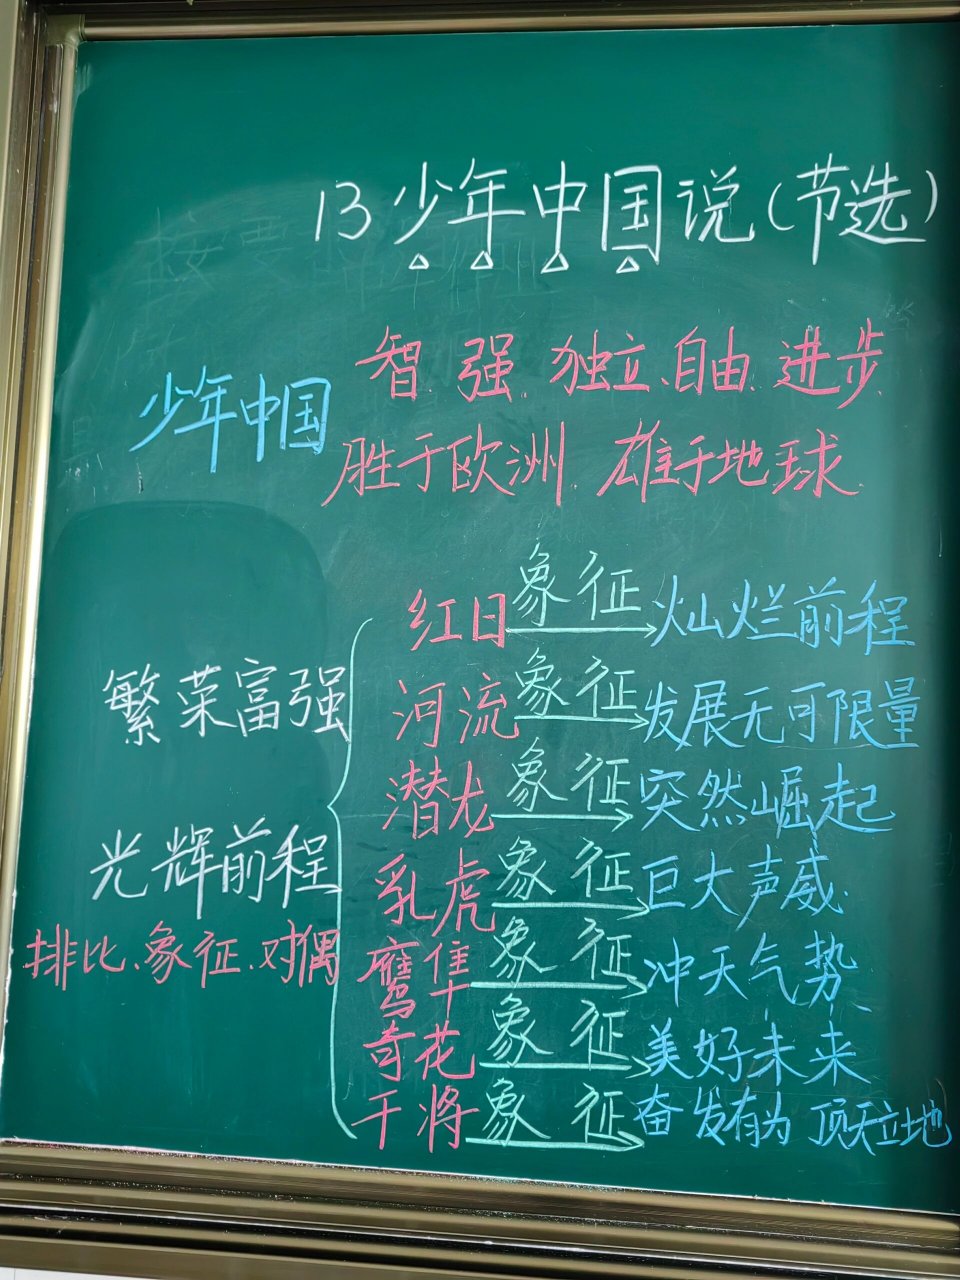 13少年中国说(节选)
少年中国
智、强、独立、自由、进步
胜于欧洲 雄于地球
繁荣富强
光辉前程
排比、象征、对偶
红日 象征 灿烂前程
河流 象征 发展无可限量
潜龙 象征 突然崛起
乳虎 象征 巨大声威
鹰隼 象征 冲天气势
奇花 象征 美好未来
干将 象征 奋发有为 顶天立地